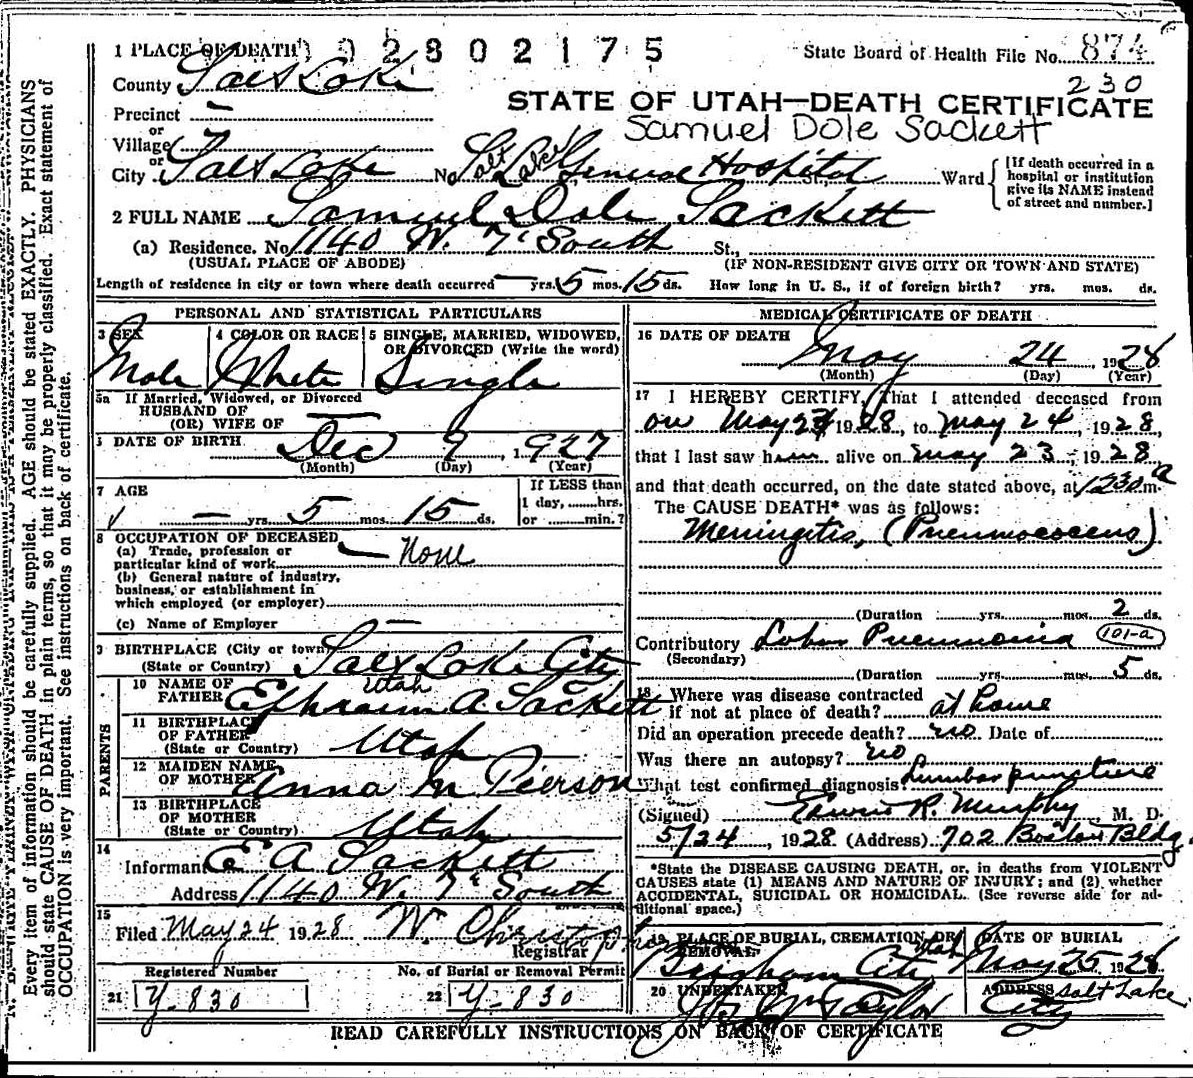 1 PLACE OF DEATH 02802175 State Board of Health File No. 874
County Salt Lake 230
Precinct —
STATE OF UTAH—DEATH CERTIFICATE
or
Village
Samuel Dole Sackett
or
City Salt Lake No. Salt Lake General Hospital St., Ward
[If death occurred in a
hospital or institution
give its NAME instead
of street and number.]
2 FULL NAME Samuel Dole Sackett
(a) Residence. No. 1140 W. 7' South St.,
(USUAL PLACE OF ABODE) (IF NON-RESIDENT GIVE CITY OR TOWN AND STATE)
Length of residence in city or town where death occurred — yrs. 5 mos. 15 ds. How long in U. S., if of foreign birth? yrs. mos. ds.
PERSONAL AND STATISTICAL PARTICULARS
3 SEX 4 COLOR OR RACE 5 SINGLE, MARRIED, WIDOWED,
OR DIVORCED (Write the word)
Male White Single
5a If Married, Widowed, or Divorced
HUSBAND OF
(OR) WIFE OF —
6 DATE OF BIRTH Dec 9, 1927
(Month) (Day) (Year)
7 AGE If LESS than
1 day, ......hrs.
— yrs. 5 mos. 15 ds. or ......min.?
8 OCCUPATION OF DECEASED
(a) Trade, profession or
particular kind of work None
(b) General nature of industry,
business, or establishment in
which employed (or employer)
(c) Name of Employer —
9 BIRTHPLACE (City or town) Salt Lake City
(State or Country) Utah
PARENTS
10 NAME OF
FATHER Ephraim A Sackett
11 BIRTHPLACE
OF FATHER
(State or Country) Utah
12 MAIDEN NAME
OF MOTHER Anna M Pierson
13 BIRTHPLACE
OF MOTHER
(State or Country) Utah
14
Informant E A Sackett
Address 1140 W. 7' South
15
Filed May 24 1928 W. Christop
Registrar
Registered Number No. of Burial or Removal Permit
21 Y-830 22 Y-830
MEDICAL CERTIFICATE OF DEATH
16 DATE OF DEATH May 24, 1928
(Month) (Day) (Year)
17 I HEREBY CERTIFY, That I attended deceased from
on May 23, 1928, to May 24, 1928,
that I last saw him alive on May 23, 1928
and that death occurred, on the date stated above, at 1230 a m.
The CAUSE DEATH* was as follows:
Meningitis, (Pneumococcus)
(Duration yrs. mos. 2 ds.
Contributory Lobar Pneumonia 101-a
(Secondary)
(Duration yrs. mos. 5 ds.
18 Where was disease contracted
if not at place of death? at home
Did an operation precede death? no Date of
Was there an autopsy? no
What test confirmed diagnosis? Lumbar puncture
(Signed) Edwin R. Murphy M. D.
5/24, 1928 (Address) 702 Boston Bldg.
*State the DISEASE CAUSING DEATH, or, in deaths from VIOLENT
CAUSES state (1) MEANS AND NATURE OF INJURY; and (2) whether
ACCIDENTAL, SUICIDAL OR HOMICIDAL. (See reverse side for ad-
ditional space.)
19 PLACE OF BURIAL, CREMATION, OR
REMOVAL DATE OF BURIAL
Brigham City Utah May 25 1928
20 UNDERTAKER ADDRESS Salt Lake
Taylor City
READ CAREFULLY INSTRUCTIONS ON BACK OF CERTIFICATE
Every item of information should be carefully supplied. AGE should be stated EXACTLY. PHYSICIANS
should state CAUSE OF DEATH in plain terms, so that it may be properly classified. Exact statement of
OCCUPATION is very important. See instructions on back of certificate.